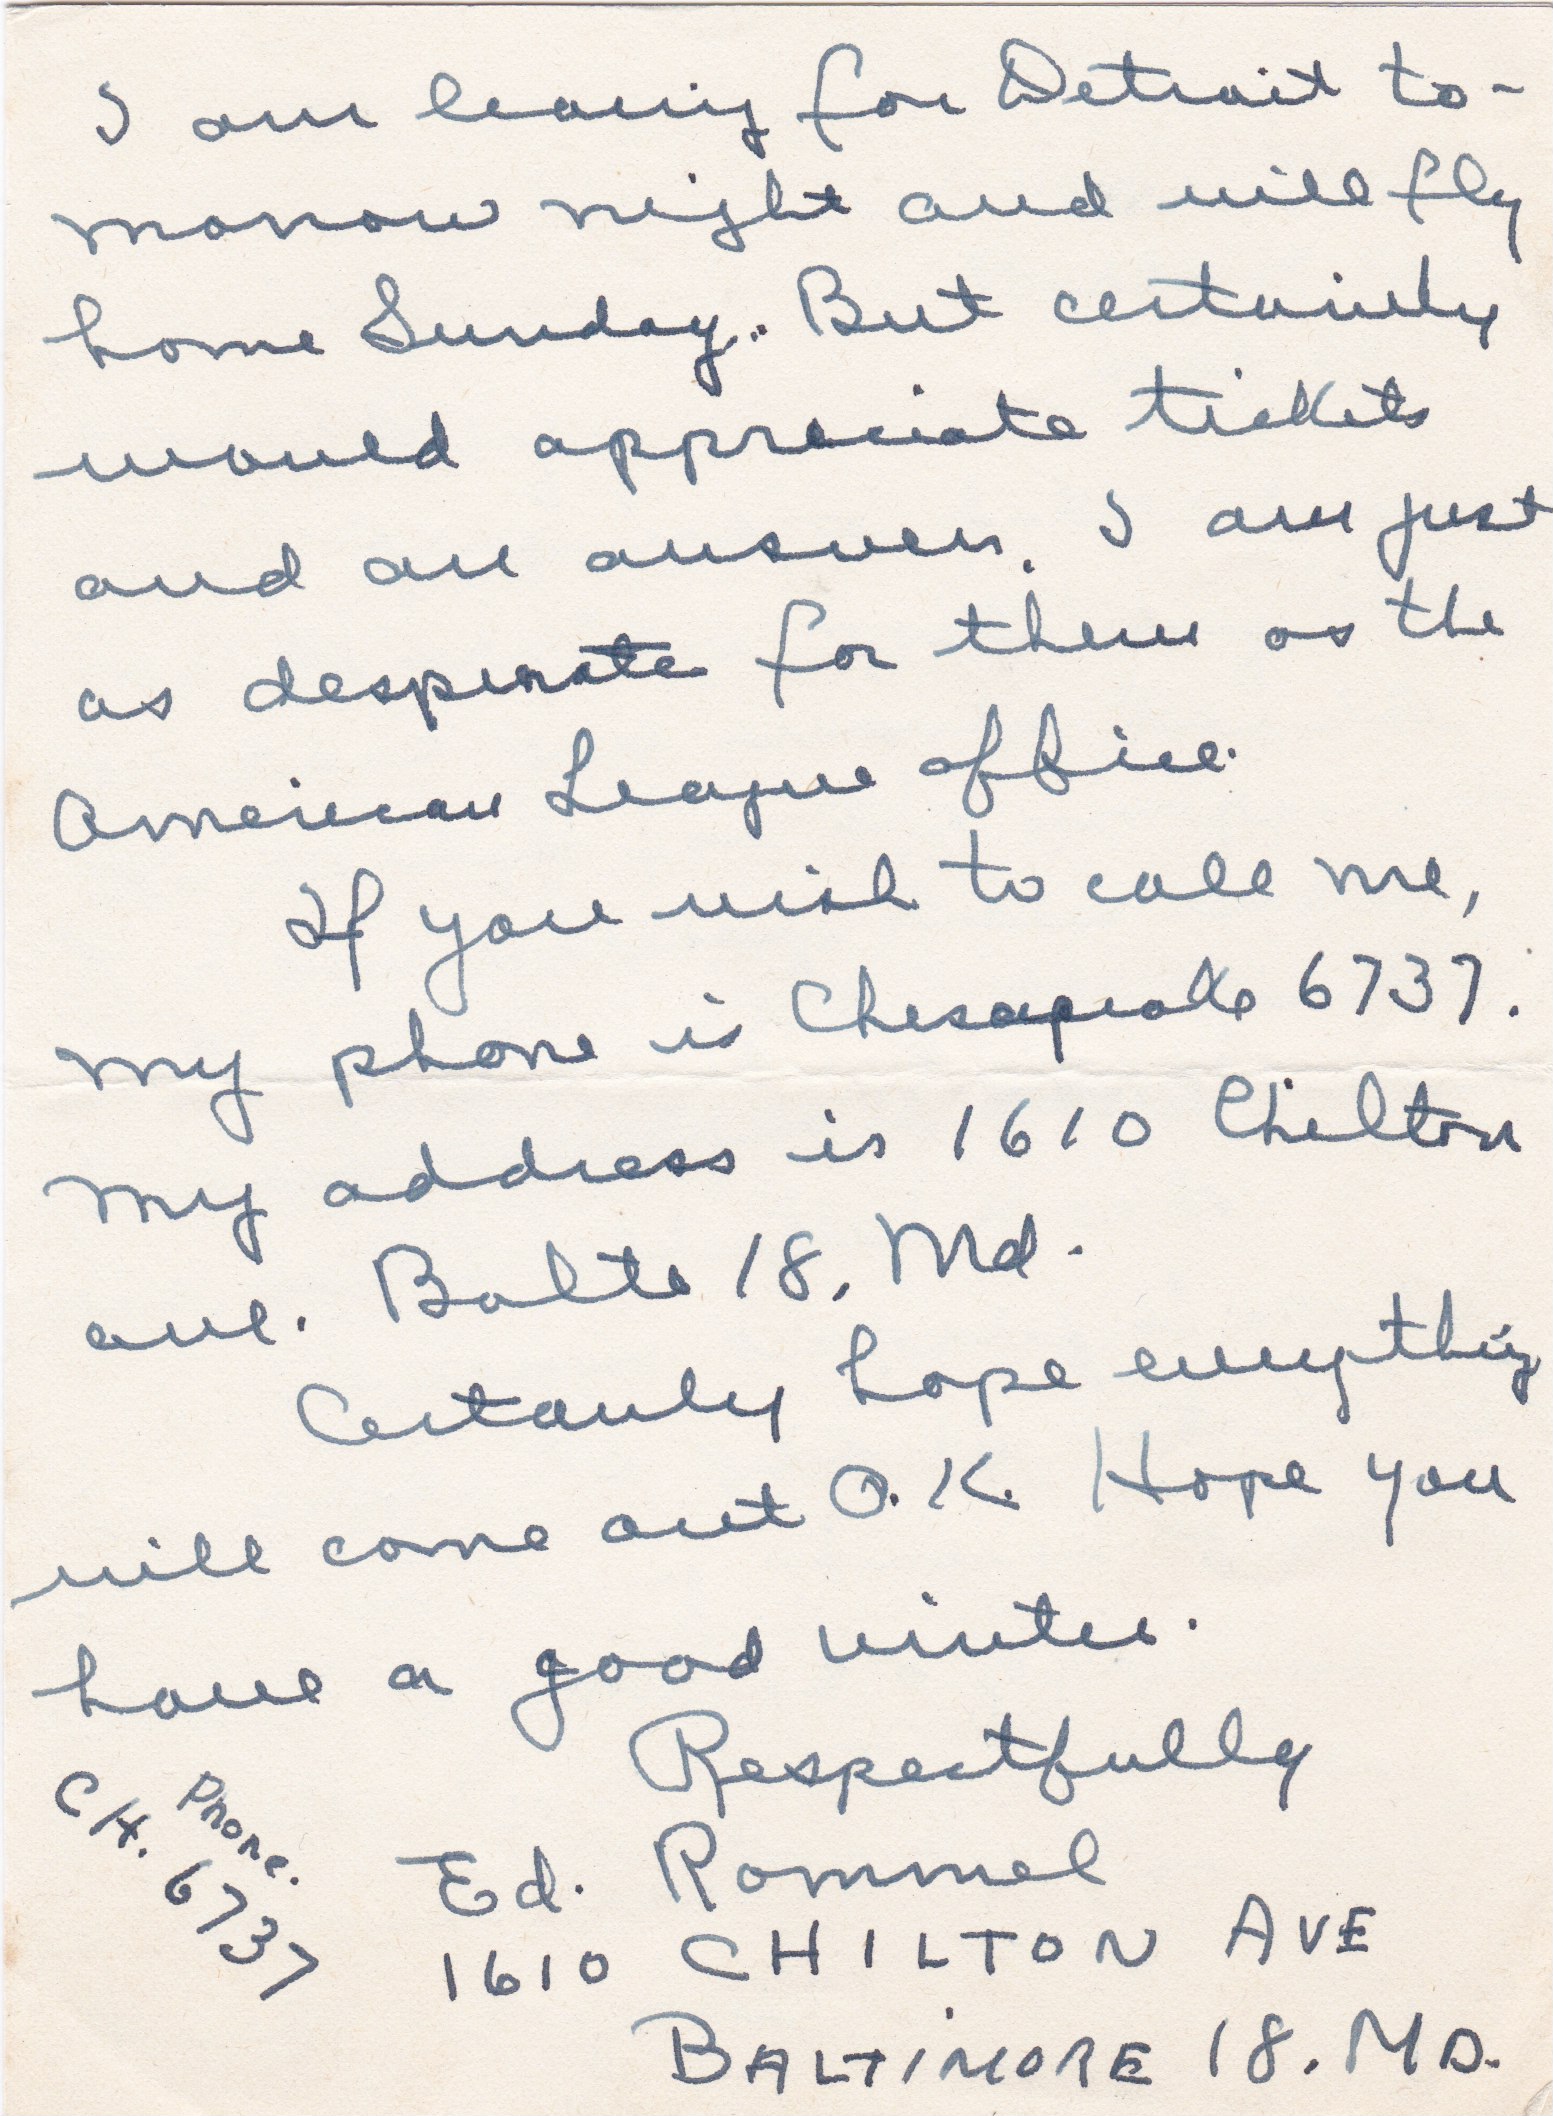 I am leaving for Detroit to-
morrow night and will fly
home Sunday. But certainly
would appreciate tickets
and an answer. I am just
as desperate for them as the
American League office.
If you wish to call me,
my phone is Chesapeake 6737.
My address is 1610 Chilton
ave. Balto 18, Md.
Certainly hope everything
will come out O.K. Hope you
have a good winter.
Respectfully
Ed. Rommel
1610 CHILTON AVE
BALTIMORE 18. MD.
Phone.
CH. 6737